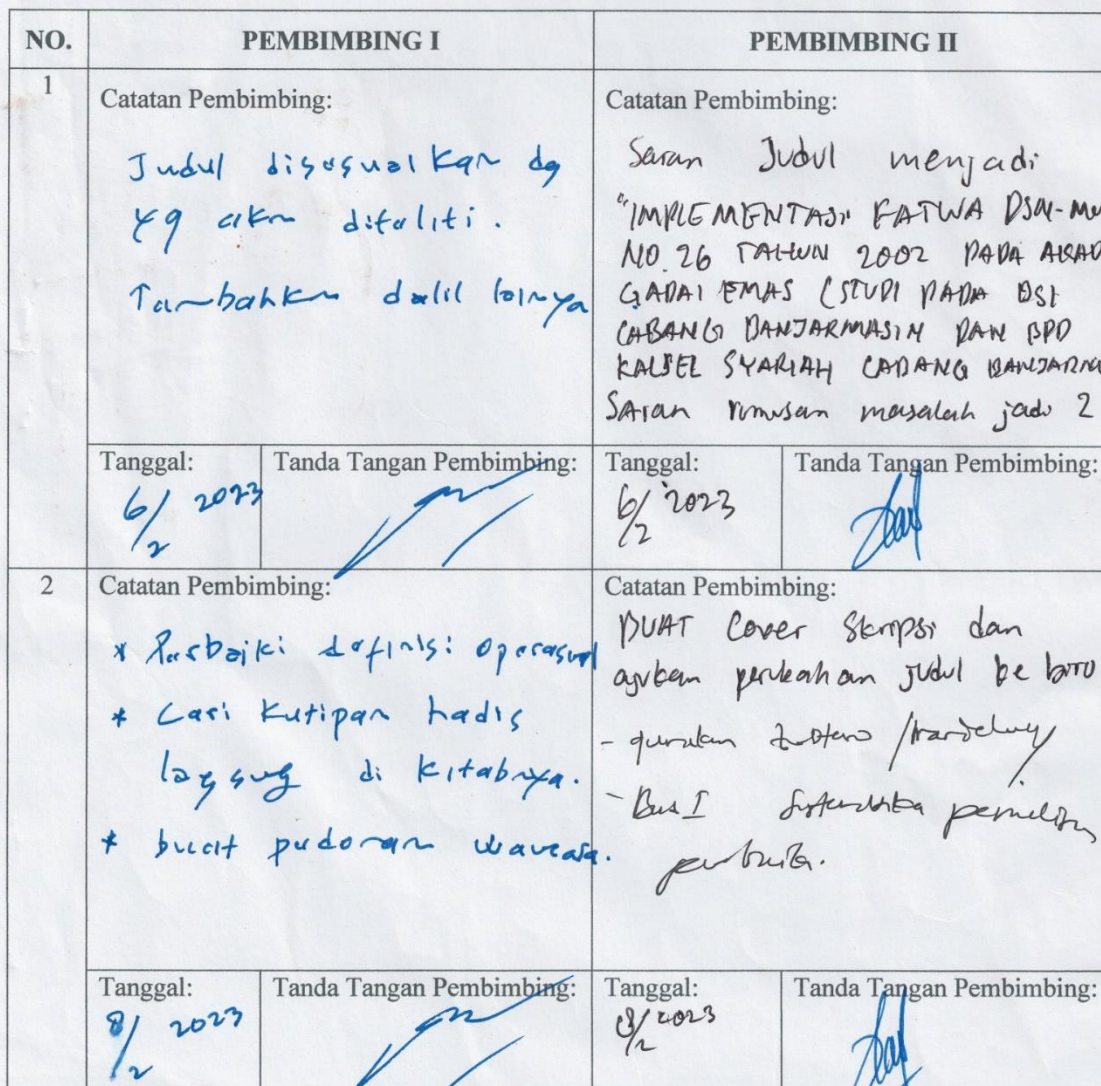 NO.
PEMBIMBING I
PEMBIMBING II
1
Catatan Pembimbing:
Judul disesuaikan dg
yg akan diteliti.
Tambahkan dalil lainnya
Catatan Pembimbing:
Saran Judul menjadi
"IMPLEMENTASI FATWA DSN-MU
NO. 26 TAHUN 2002 PADA AKAD
GADAI EMAS (STUDI PADA BSI
CABANG BANJARMASIN DAN BPD
KALSEL SYARIAH CABANG BANJARMA
Saran rumusan masalah jadi 2
Tanggal:
6/2 2023
Tanda Tangan Pembimbing:
Tanggal:
6/2 2023
Tanda Tangan Pembimbing:
2
Catatan Pembimbing:
* Perbaiki definisi operasional
* Cari kutipan hadis
langsung di kitabnya.
* buat pedoman wawcara.
Catatan Pembimbing:
BUAT Cover Skripsi dan
ajukan perubahan judul ke biro
- gunakan Zotero / Mendeley
- Bab I Sistematika penulisan
perbaiki.
Tanggal:
8/2 2023
Tanda Tangan Pembimbing:
Tanggal:
8/2 2023
Tanda Tangan Pembimbing: